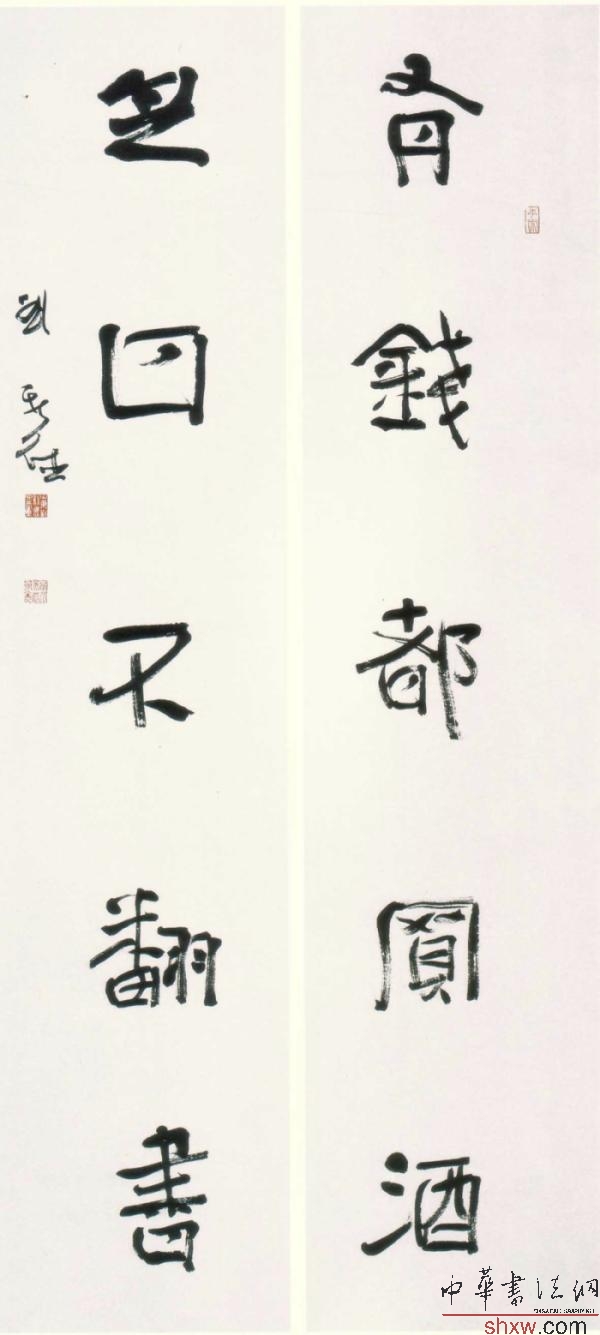 有錢都買酒
無日不翻書
劉
中華書法網
shxw.com